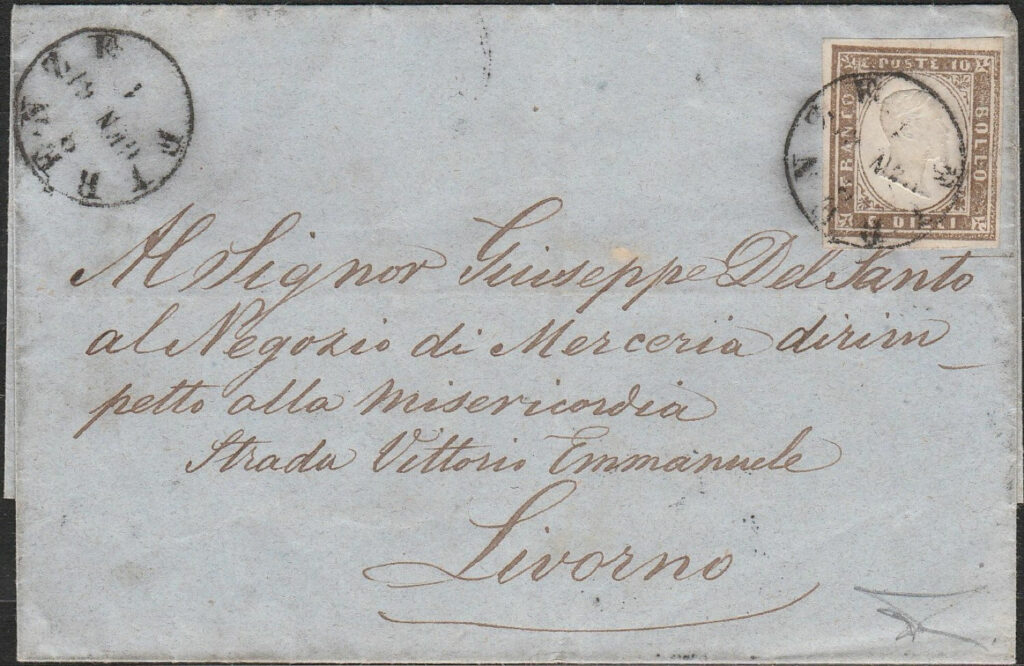 FIRENZE
C. POSTE 10
FRANCO
BOLLO
DIECI
Al Signor Giuseppe Del Santo
al Negozio di Merceria dirim
petto alla Misericordia
Strada Vittorio Emmanuele
Livorno